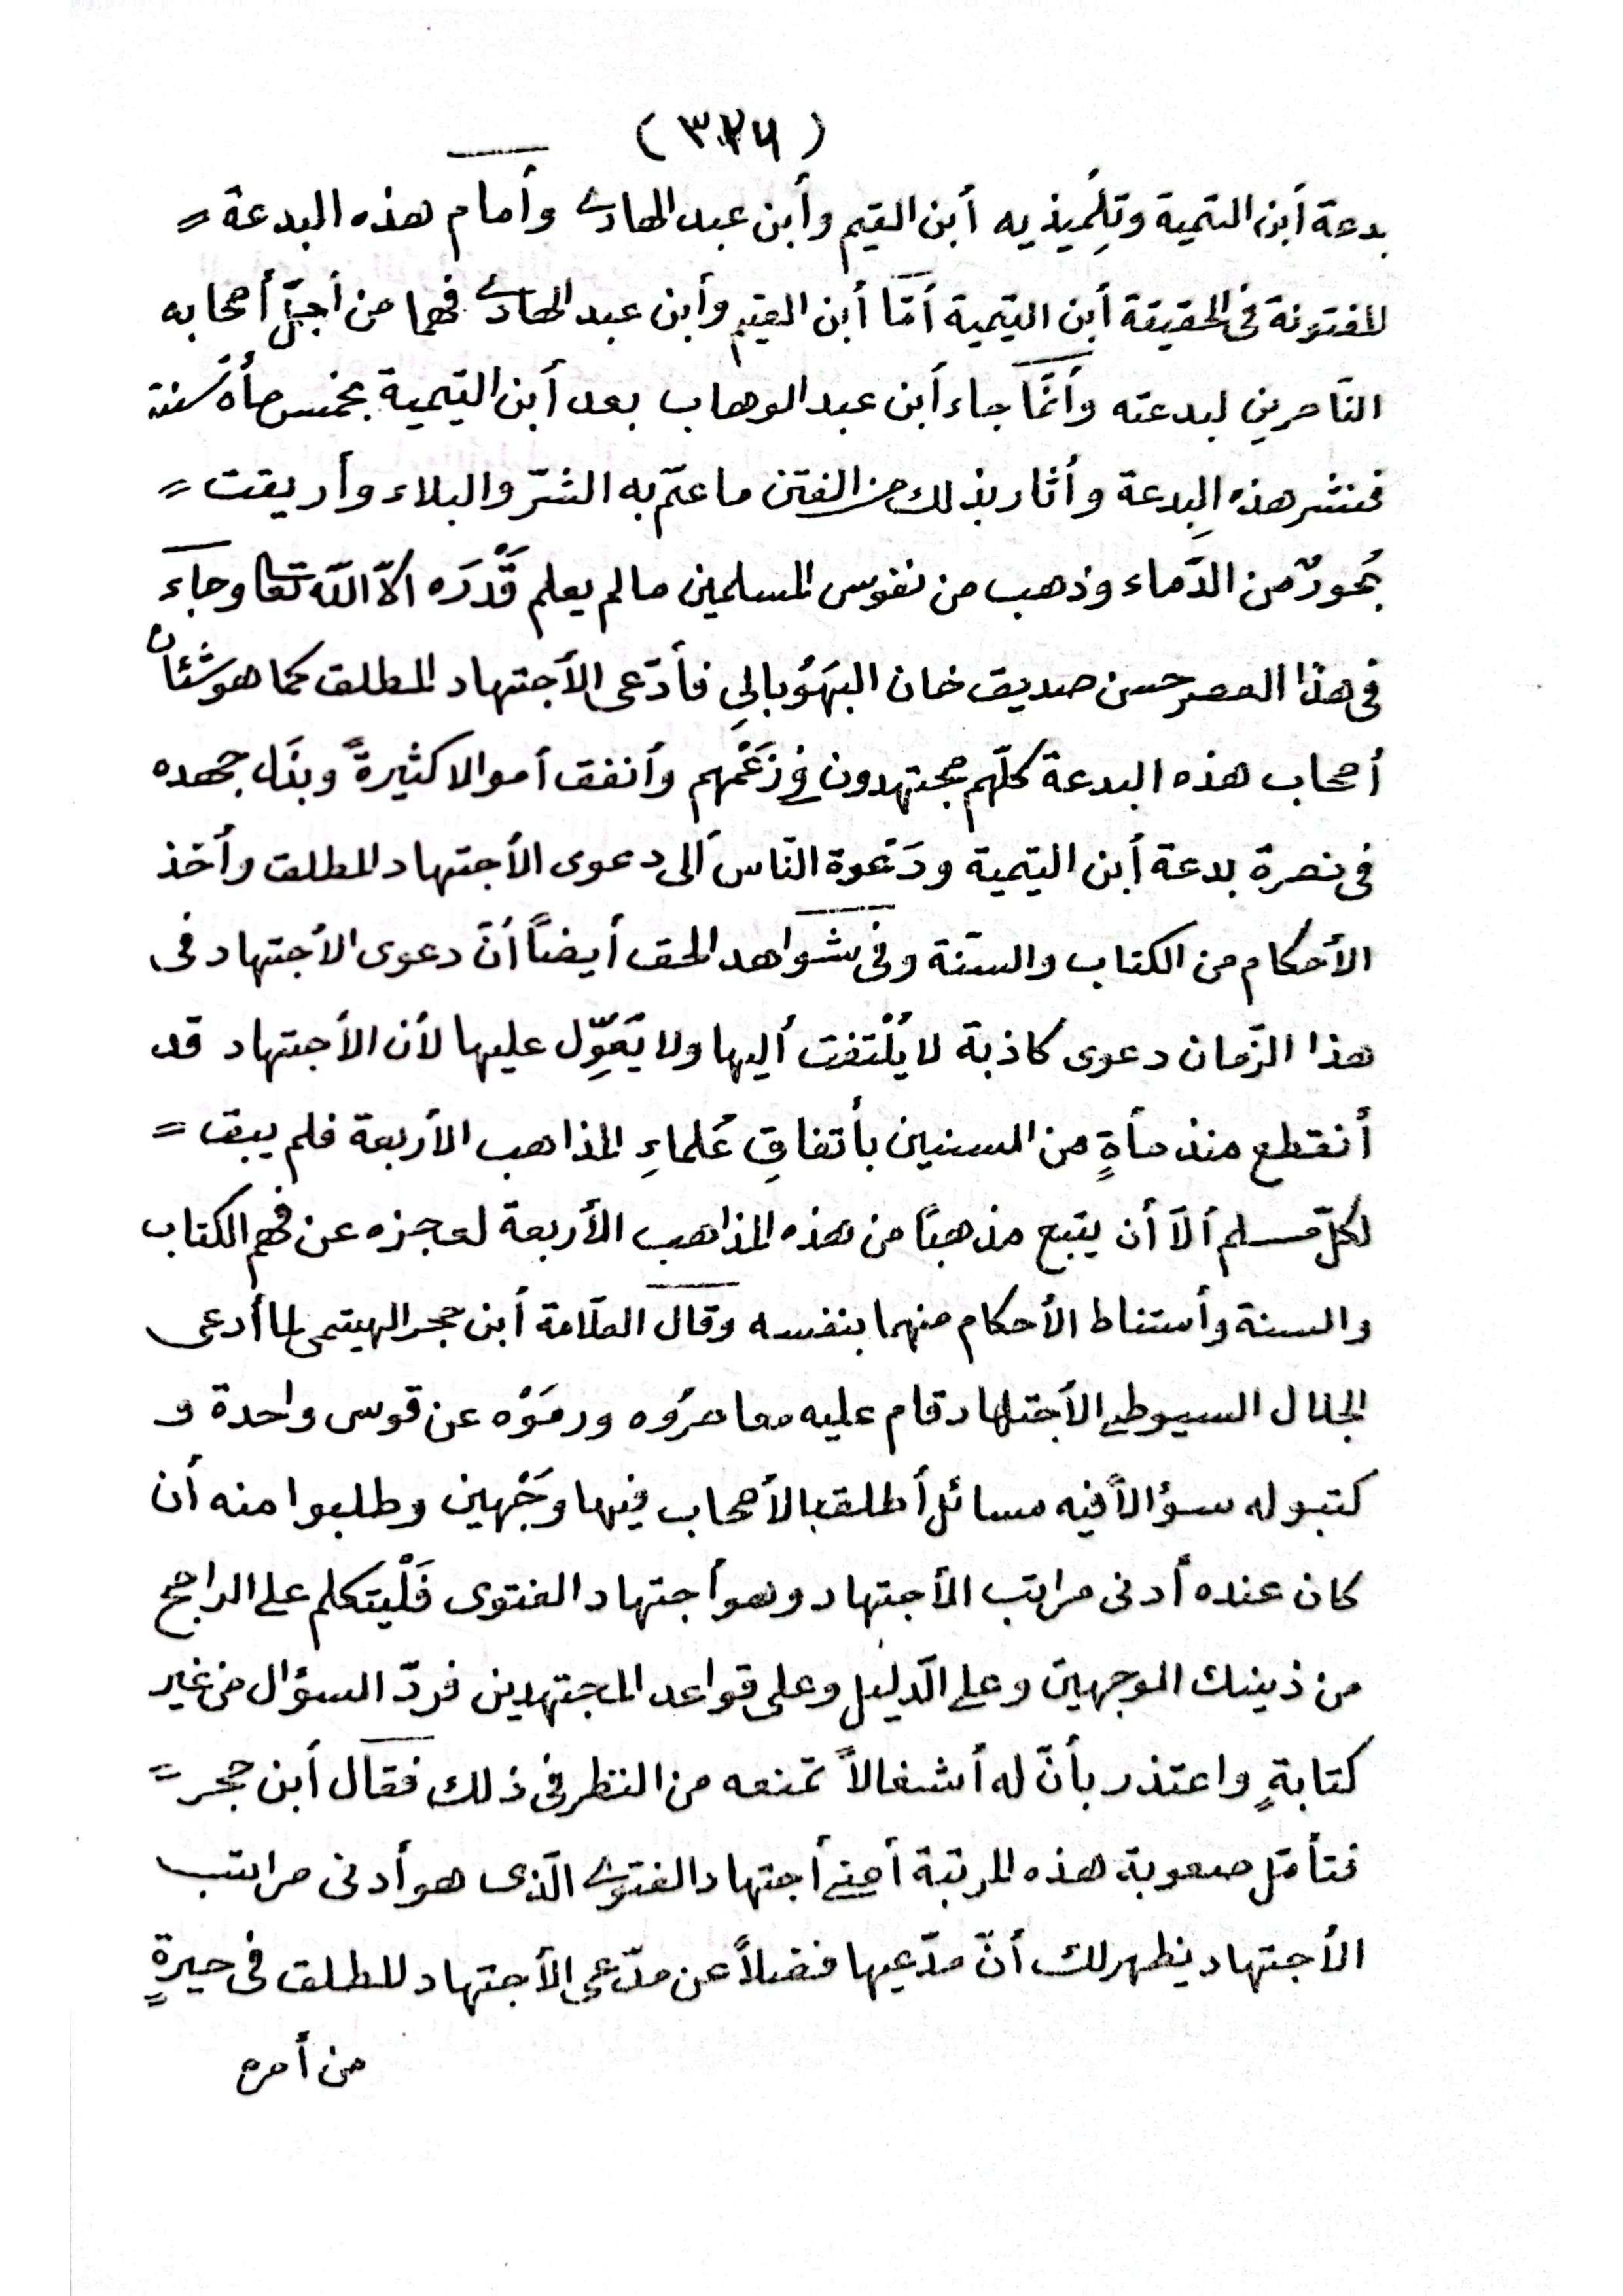 ( ٣٢٦ )
بدعة أبن التمية وتلِّميذيه أبن القيم وأبن عبد الهادى وأمام هذه البدعة =
المفتونة فى الحقيقة أبن التيمية أمّا أبن القيم وأبن عبد الهادى فهما من أجلّ أصحابه
النّاصرين لبدعته وأنّما جاء أبن عبد الوهاب بعد أبن التيمية بخمس مأة سنة
فنشر هذه البِدعة وأثار بذلك من الفتن ما عمّ به الشرّ والبلاء وأريقت =
بُحورٌ من الدّماء وذهب من نفوس المسلمين ما لم يعلم قَدْرَه الاّ اللّه تعا وجاءَ
فى هذا العصر حسن صديق خان البَهَوْبالِي فأدّعى الأجتهاد المطلق كما هو شئان
أصحاب هذه البدعة كلّهم مجتهدون فى زَعْمهم وأنفق أموالا كثيرةً وبذَل جهده
فى نصرة بدعة أبن التيمية ودَعوة النّاس ألى دعوى الأجتهاد المطلق وأخذ
الأحكام من الكتاب والسنّة وفى شواهد الحق أيضاً أنّ دعوى الأجتهاد فى
هذا الزّمان دعوى كاذبة لا يُلْتفت أليها ولا يَعَوِّل عليها لأن الأجتهاد قد
أنقطع منذ مأةٍ من السنين بأتفاقِ عُلماءِ المذاهب الأربعة فلم يبق =
لكلّ مسلم ألاّ أن يتبع مذهبًا من هذه المذاهب الأربعة لعجزه عن فهم الكتاب
والسنة وأستناط الأحكام منهما بنفسه وقال العلاّمة أبن حجر الهيتمى لما أدعى
الجلال السيوطى الأجتهاد قام عليه معاصرُوه ورمَوْه عن قوس واحدة و
كتبو له سؤالاً فيه مسائل أطلق الأصحاب فيها وَجْهين وطلبوا منه أن
كان عنده أدنى مراتب الأجتهاد وهو أجتهاد الفتوى فَلْيتكلم على الراجح
من ذينك الوجهين وعلى الّدليل وعلى قواعد المجتهدين فردّ السؤال من غير
كتابةٍ واعتذر بأنّ له أشغالاً تمنعه من النظر فى ذلك فقال أبن حجر =
فتأمّل صعوبة هذه المرتبة أعنى أجتهاد الفتوى الّذى هو أدنى مراتب
الأجتهاد يظهر لك أنّ مدّعيها فضلاً عن مدّعى الأجتهاد المطلق فى حيرةٍ
من أمره